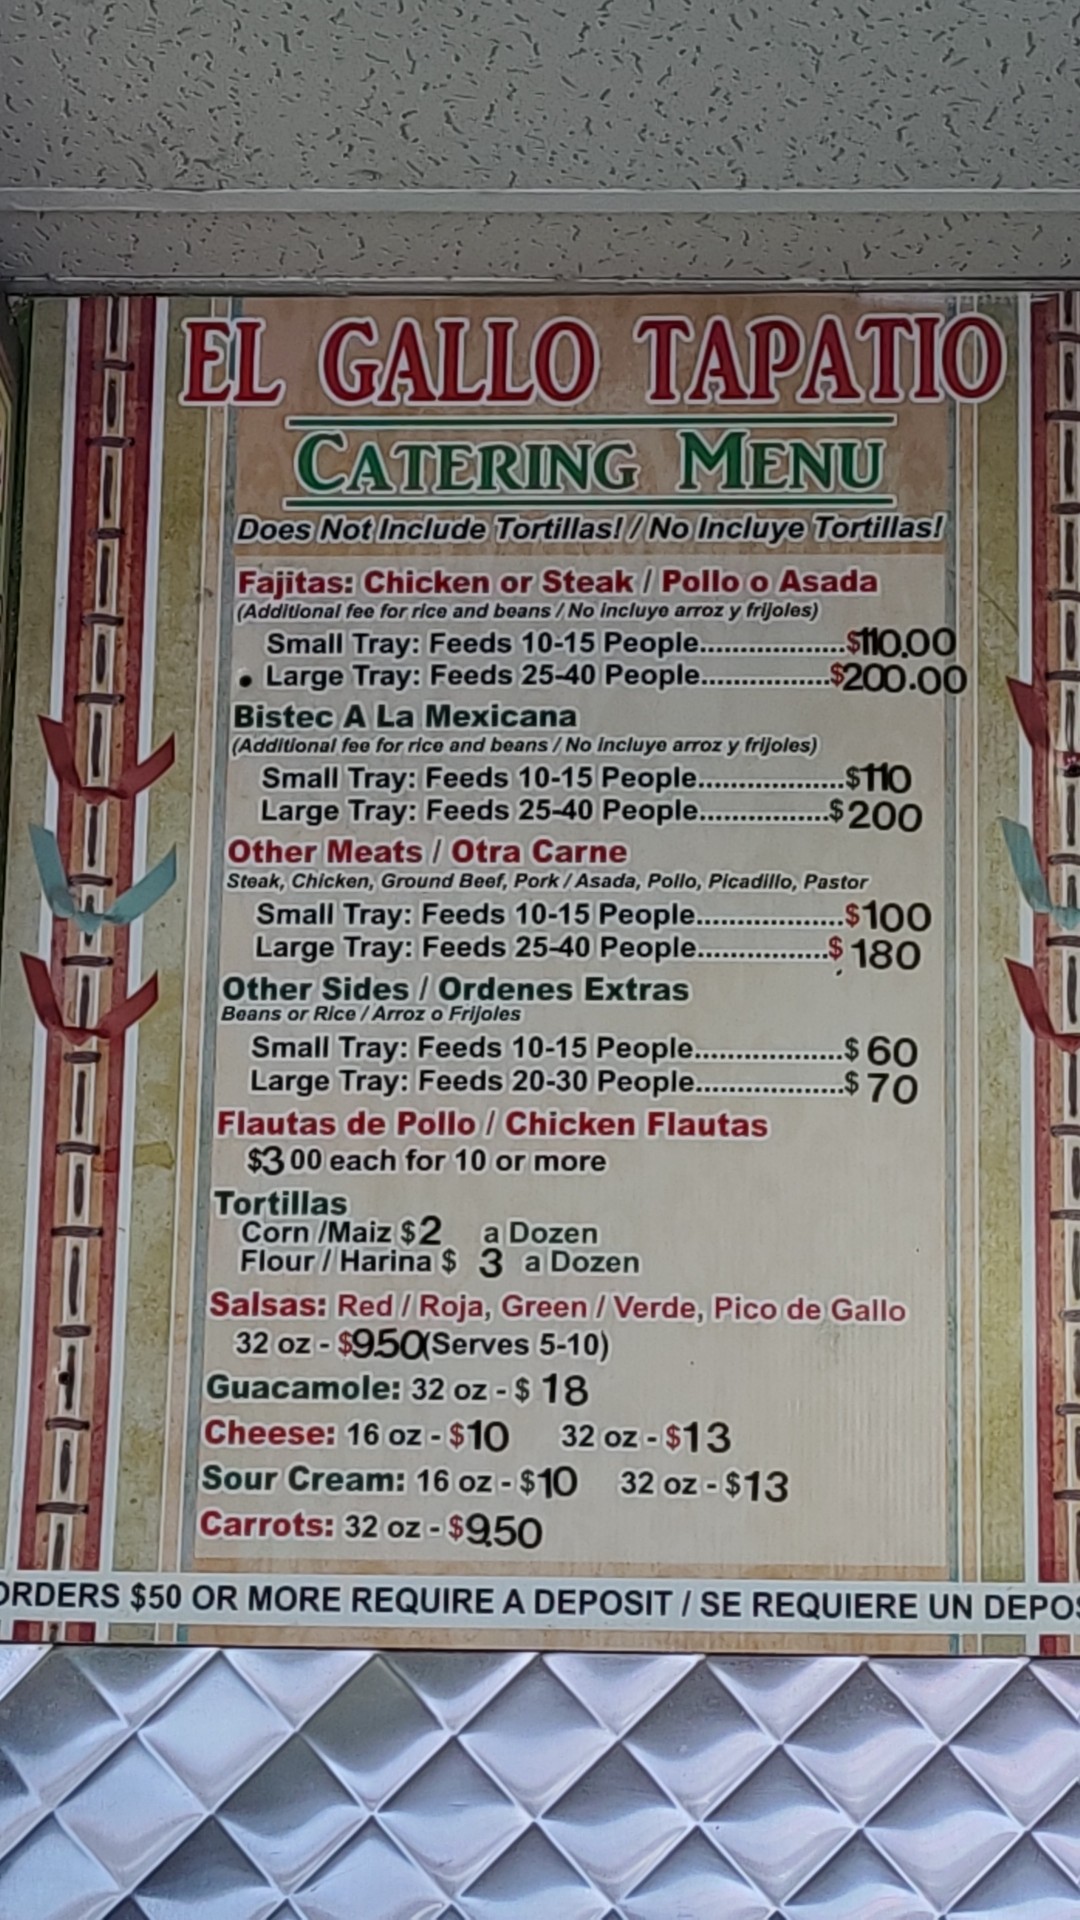 EL GALLO TAPATIO
CATERING MENU
Does Not Include Tortillas! / No Incluye Tortillas!
Fajitas: Chicken or Steak / Pollo o Asada
(Additional fee for rice and beans / No incluye arroz y frijoles)
Small Tray: Feeds 10-15 People..................$110.00
• Large Tray: Feeds 25-40 People................$200.00
Bistec A La Mexicana
(Additional fee for rice and beans / No incluye arroz y frijoles)
Small Tray: Feeds 10-15 People..................$110
Large Tray: Feeds 25-40 People................$200
Other Meats / Otra Carne
Steak, Chicken, Ground Beef, Pork / Asada, Pollo, Picadillo, Pastor
Small Tray: Feeds 10-15 People..................$100
Large Tray: Feeds 25-40 People................$180
Other Sides / Ordenes Extras
Beans or Rice / Arroz o Frijoles
Small Tray: Feeds 10-15 People..................$60
Large Tray: Feeds 20-30 People..................$70
Flautas de Pollo / Chicken Flautas
$3 00 each for 10 or more
Tortillas
Corn /Maiz $2 a Dozen
Flour / Harina $ 3 a Dozen
Salsas: Red / Roja, Green / Verde, Pico de Gallo
32 oz - $9.50(Serves 5-10)
Guacamole: 32 oz - $ 18
Cheese: 16 oz - $10 32 oz - $13
Sour Cream: 16 oz - $10 32 oz - $13
Carrots: 32 oz - $9.50
ORDERS $50 OR MORE REQUIRE A DEPOSIT / SE REQUIERE UN DEPOS